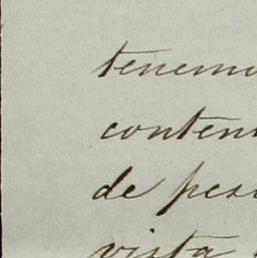 tenemo
conten
de pes
vista